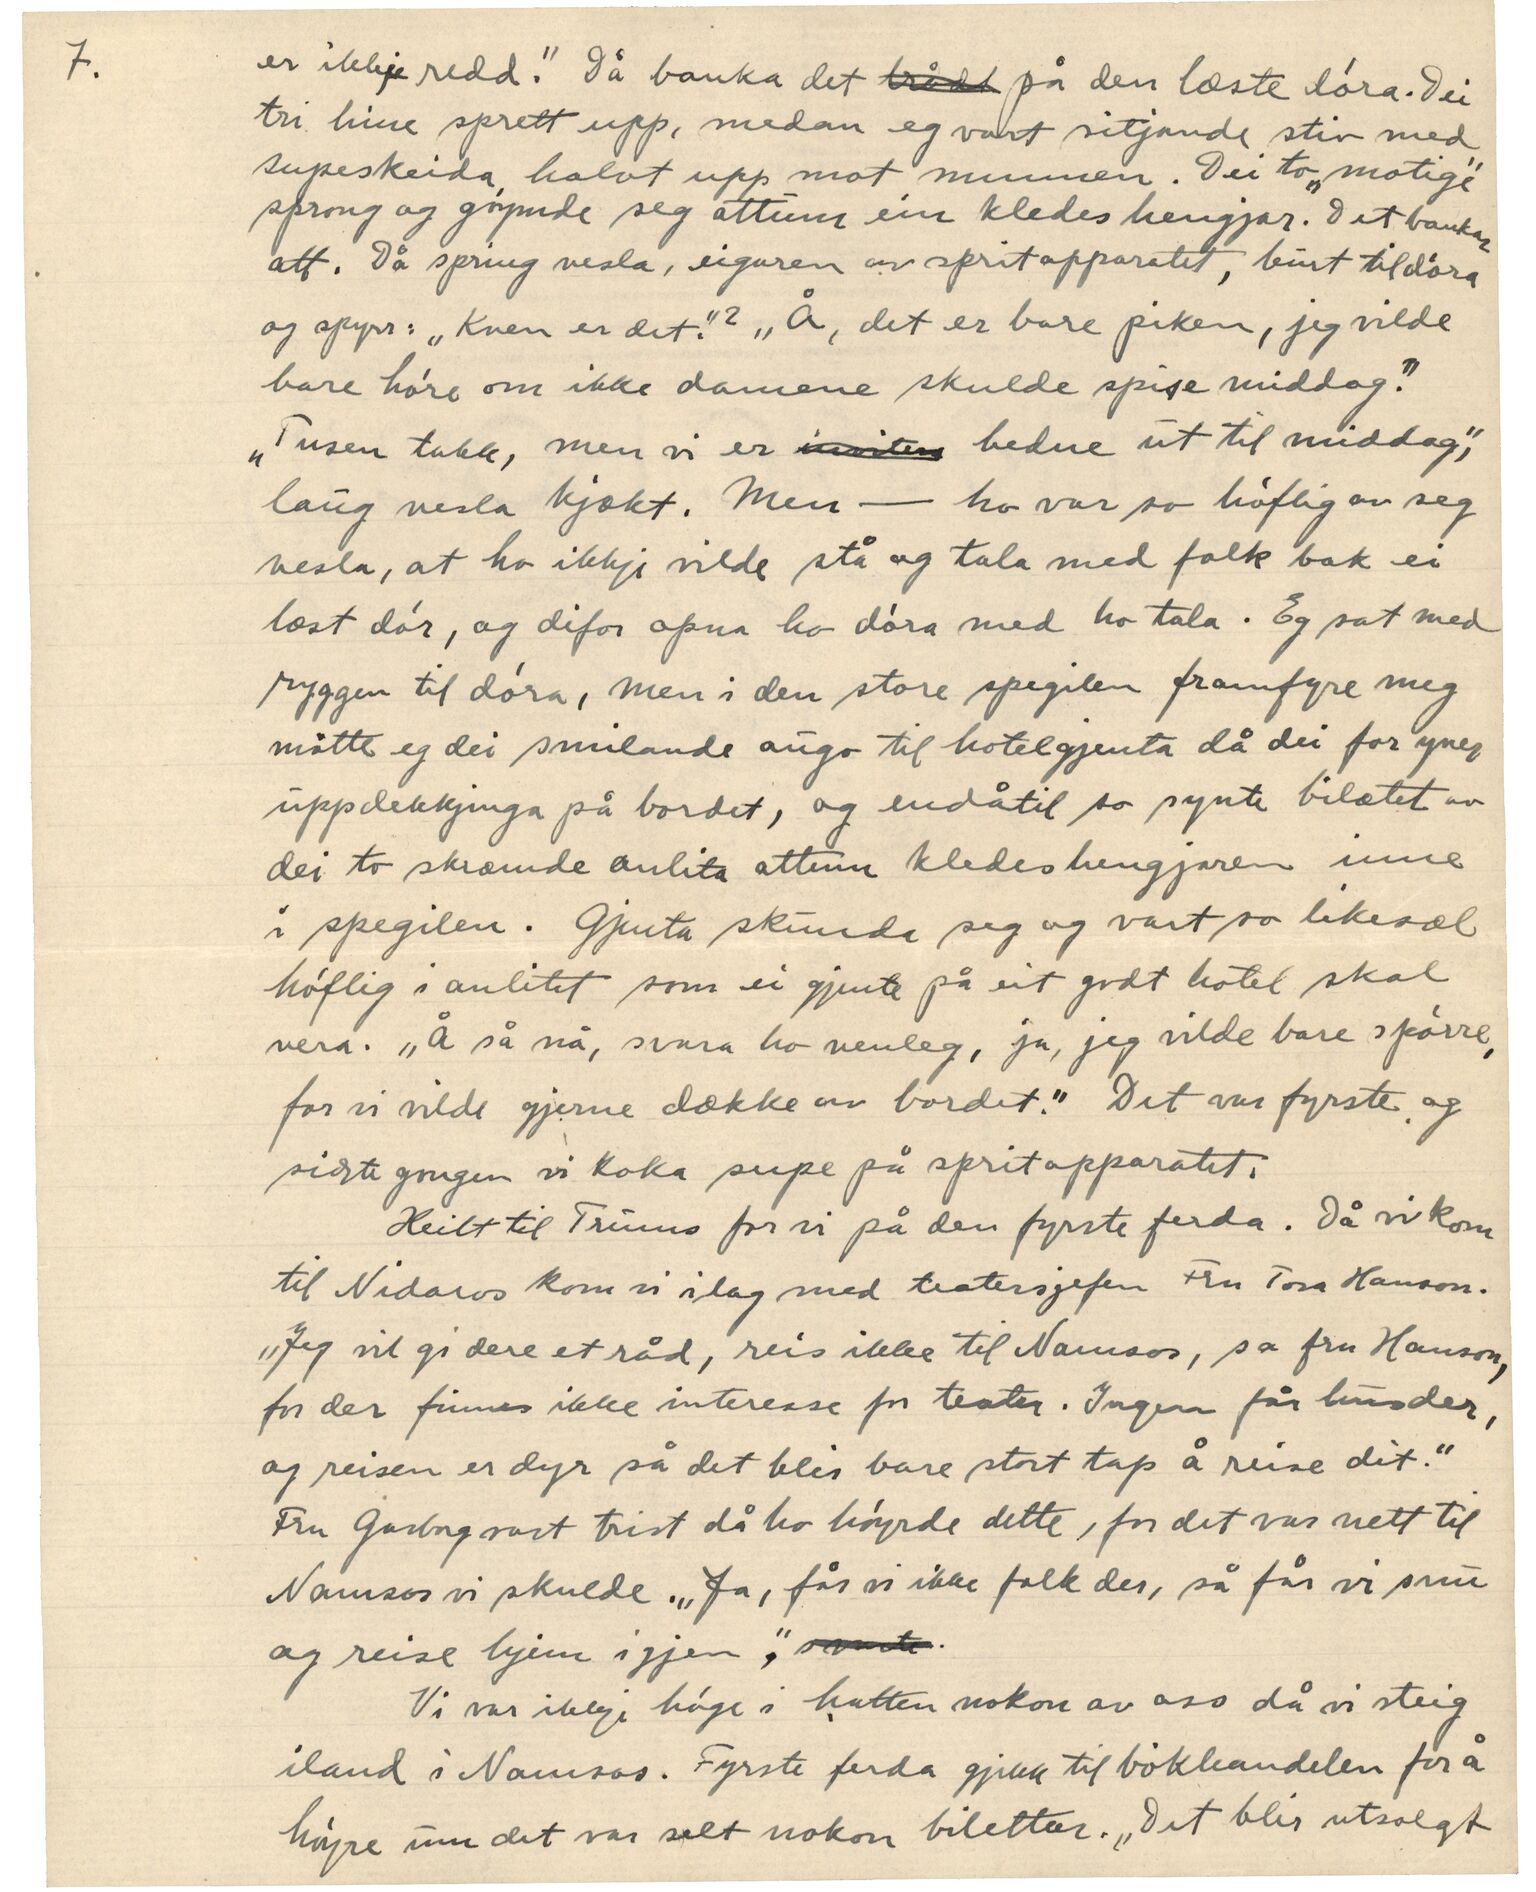 7.
er ikkje redd." Då banka det brådt på den læste dóra. Dei
tri hine sprett upp, medan eg vart sitjande stiv med
supeskeida halvt upp mot munnen. Dei to „motige"
sprong og góymde seg attum ein kledeshengjar. Det bankar
att. Då spring vesla, eigaren av spritapparatet, burt til dóra
og spyrr: „Kven er det."? „Å, det er bare piken, jeg vilde
bare hóre om ikke damene skulde spise middag."
„Tusen takk, men vi er inviten bedne ut til middag",
laug vesla kjækt. Men — ho var so hóflig av seg
vesla, at ho ikkje vilde stå og tala med folk bak ei
læst dór, og difor opna ho dóra med ho tala. Eg sat med
ryggen til dóra, men i den store spegilen framfyre meg
mótte eg dei smilande augo til hotelgjenta då dei for yver
uppdekkjinga på bordet, og endåtil so synte bilætet av
dei to skræmde anlita attum kledeshengjaren inne
i spegilen. Gjenta skunda seg og vart so likesæl
hóflig i anlitet som ei gjente på eit godt hotel skal
vera. „Å så nå, svara ho venleg, ja, jeg vilde bare spórre,
for vi vilde gjerne dække av bordet." Det var fyrste og
sidste gongen vi koka supe på spritapparatet.
Heilt til Trums for vi på den fyrste ferda. Då vi kom
til Nidaros kom vi ilag med teatersjefen Fru Tora Hanson.
„Jeg vil gi dere et råd, reis ikke til Namsos, sa fru Hanson,
for der finnes ikke interesse for teater. Ingen får hus der,
og reisen er dyr så det blir bare stort tap å reise dit."
Fru Garborg vart trist då ho hóyrde dette, for det var nett til
Namsos vi skulde. „Ja, får vi ikke folk der, så får vi snu
og reise hjem igjen",
Vi var ikkje hóge i hatten nokon av oss då vi steig
iland i Namsos. Fyrste ferda gjekk til bókhandelen for å
hóyre um det var selt nokon bilettar. „Det blir utsolgt